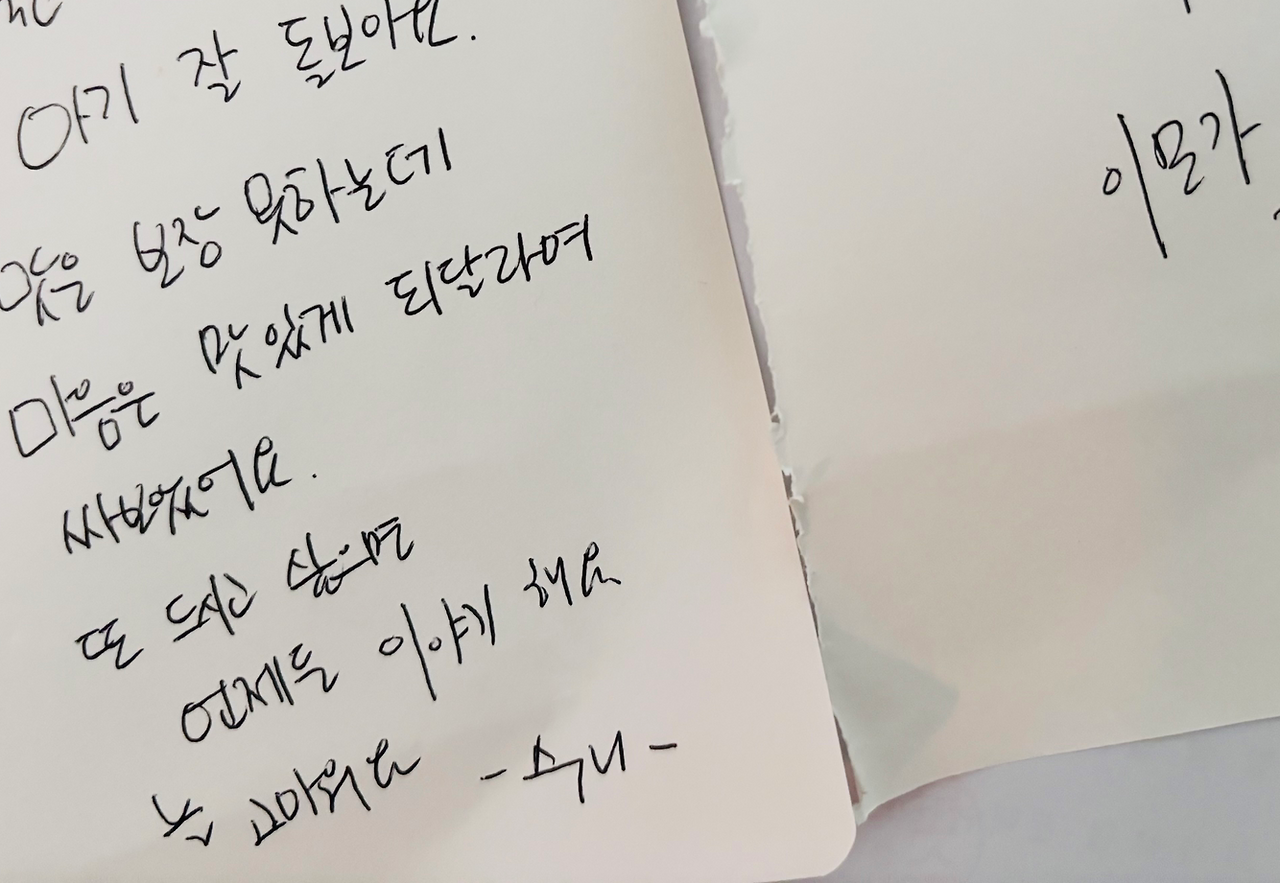 아기 잘 돌보아요.
맛은 보장 못하는데
마음은 맛있게 되달라며
싸보았어요.
또 드시고 싶으면
언제든 이야기 해요
늘 고마워요 -수니-
이모가